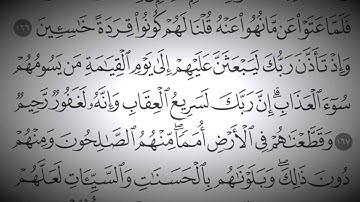 فَلَمَّا عَتَوْا۟ عَن مَّا نُهُوا۟ عَنْهُ قُلْنَا لَهُمْ كُونُوا۟ قِرَدَةً خَٰسِـِٔينَ ١٦٦
وَإِذْ تَأَذَّنَ رَبُّكَ لَيَبْعَثَنَّ عَلَيْهِمْ إِلَىٰ يَوْمِ ٱلْقِيَٰمَةِ مَن يَسُومُهُمْ
سُوٓءَ ٱلْعَذَابِ ۗ إِنَّ رَبَّكَ لَسَرِيعُ ٱلْعِقَابِ ۖ وَإِنَّهُۥ لَغَفُورٌ رَّحِيمٌ
١٦٧ وَقَطَّعْنَٰهُمْ فِى ٱلْأَرْضِ أُمَمًا ۖ مِّنْهُمُ ٱلصَّٰلِحُونَ وَمِنْهُمْ
دُونَ ذَٰلِكَ ۖ وَبَلَوْنَٰهُم بِٱلْحَسَنَٰتِ وَٱلسَّيِّـَٔاتِ لَعَلَّهُمْ